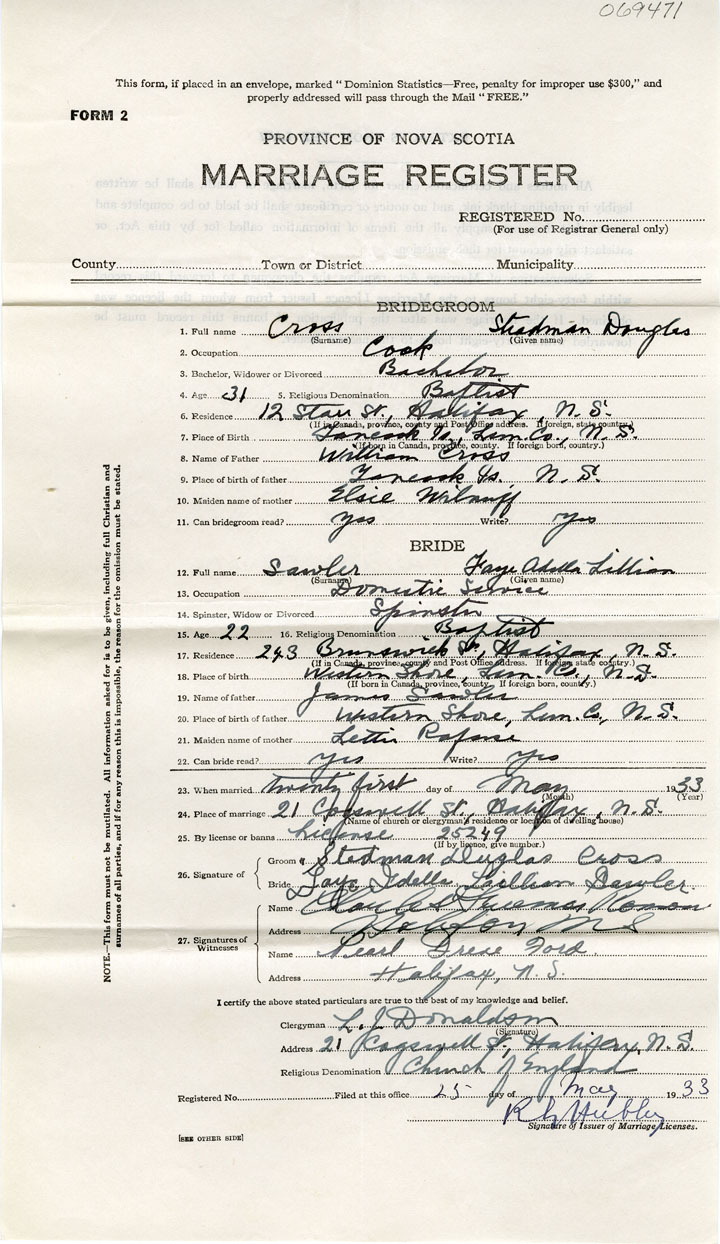 069471
This form, if placed in an envelope, marked "Dominion Statistics—Free, penalty for improper use $300," and
properly addressed will pass through the Mail "FREE."
FORM 2
PROVINCE OF NOVA SCOTIA
MARRIAGE REGISTER
REGISTERED No.
(For use of Registrar General only)
County Town or District Municipality
BRIDEGROOM
1. Full name Cross Stedman Douglas
(Surname) (Given name)
2. Occupation Cook
3. Bachelor, Widower or Divorced Bachelor
4. Age 31 5. Religious Denomination Baptist
6. Residence 12 Starr St, Halifax, N.S.
(If in Canada, province, county and Post Office address. If foreign, state country.)
7. Place of Birth Tancook Is, Lun. Co., N.S.
(If born in Canada, province, county. If foreign born, country.)
8. Name of Father William Cross
9. Place of birth of father Tancook Is. N.S.
10. Maiden name of mother Elsie
11. Can bridegroom read? yes Write? yes
BRIDE
12. Full name Sawler Faye Adella Lillian
(Surname) (Given name)
13. Occupation Domestic Service
14. Spinster, Widow or Divorced Spinster
15. Age 22 16. Religious Denomination Baptist
17. Residence 243 Brunswick St, Halifax, N.S.
(If in Canada, province, county and Post Office address. If foreign state country.)
18. Place of birth Western Shore, Lun. Co., N.S.
(If born in Canada, province, county. If foreign born, country.)
19. Name of father James Sawler
20. Place of birth of father Western Shore, Lun. Co., N.S.
21. Maiden name of mother Lettie
22. Can bride read? yes Write? yes
23. When married twenty first day of May 1933
(Month) (Year)
24. Place of marriage 21 Cogswell St, Halifax, N.S.
(Name of church or clergyman's residence or location of dwelling house)
25. By license or banns License 25249
(If by licence, give number.)
26. Signature of
Groom Stedman Duglas Cross
Bride Faye Idella Lillian Sawler.
27. Signatures of Witnesses
Name Charles Thomas
Address Halifax N S
Name Pearl Ford.
Address Halifax, N.S.
I certify the above stated particulars are true to the best of my knowledge and belief.
Clergyman L. J. Donaldson
(Signature)
Address 21 Cogswell St, Halifax, N.S.
Religious Denomination Church of England
Registered No. Filed at this office 25 day of May 1933
R Hubley
Signature of Issuer of Marriage Licenses.
[SEE OTHER SIDE]
NOTE.—This form must not be mutilated. All information asked for is to be given, including full Christian and
surnames of all parties, and if for any reason this is impossible, the reason for the omission must be stated.